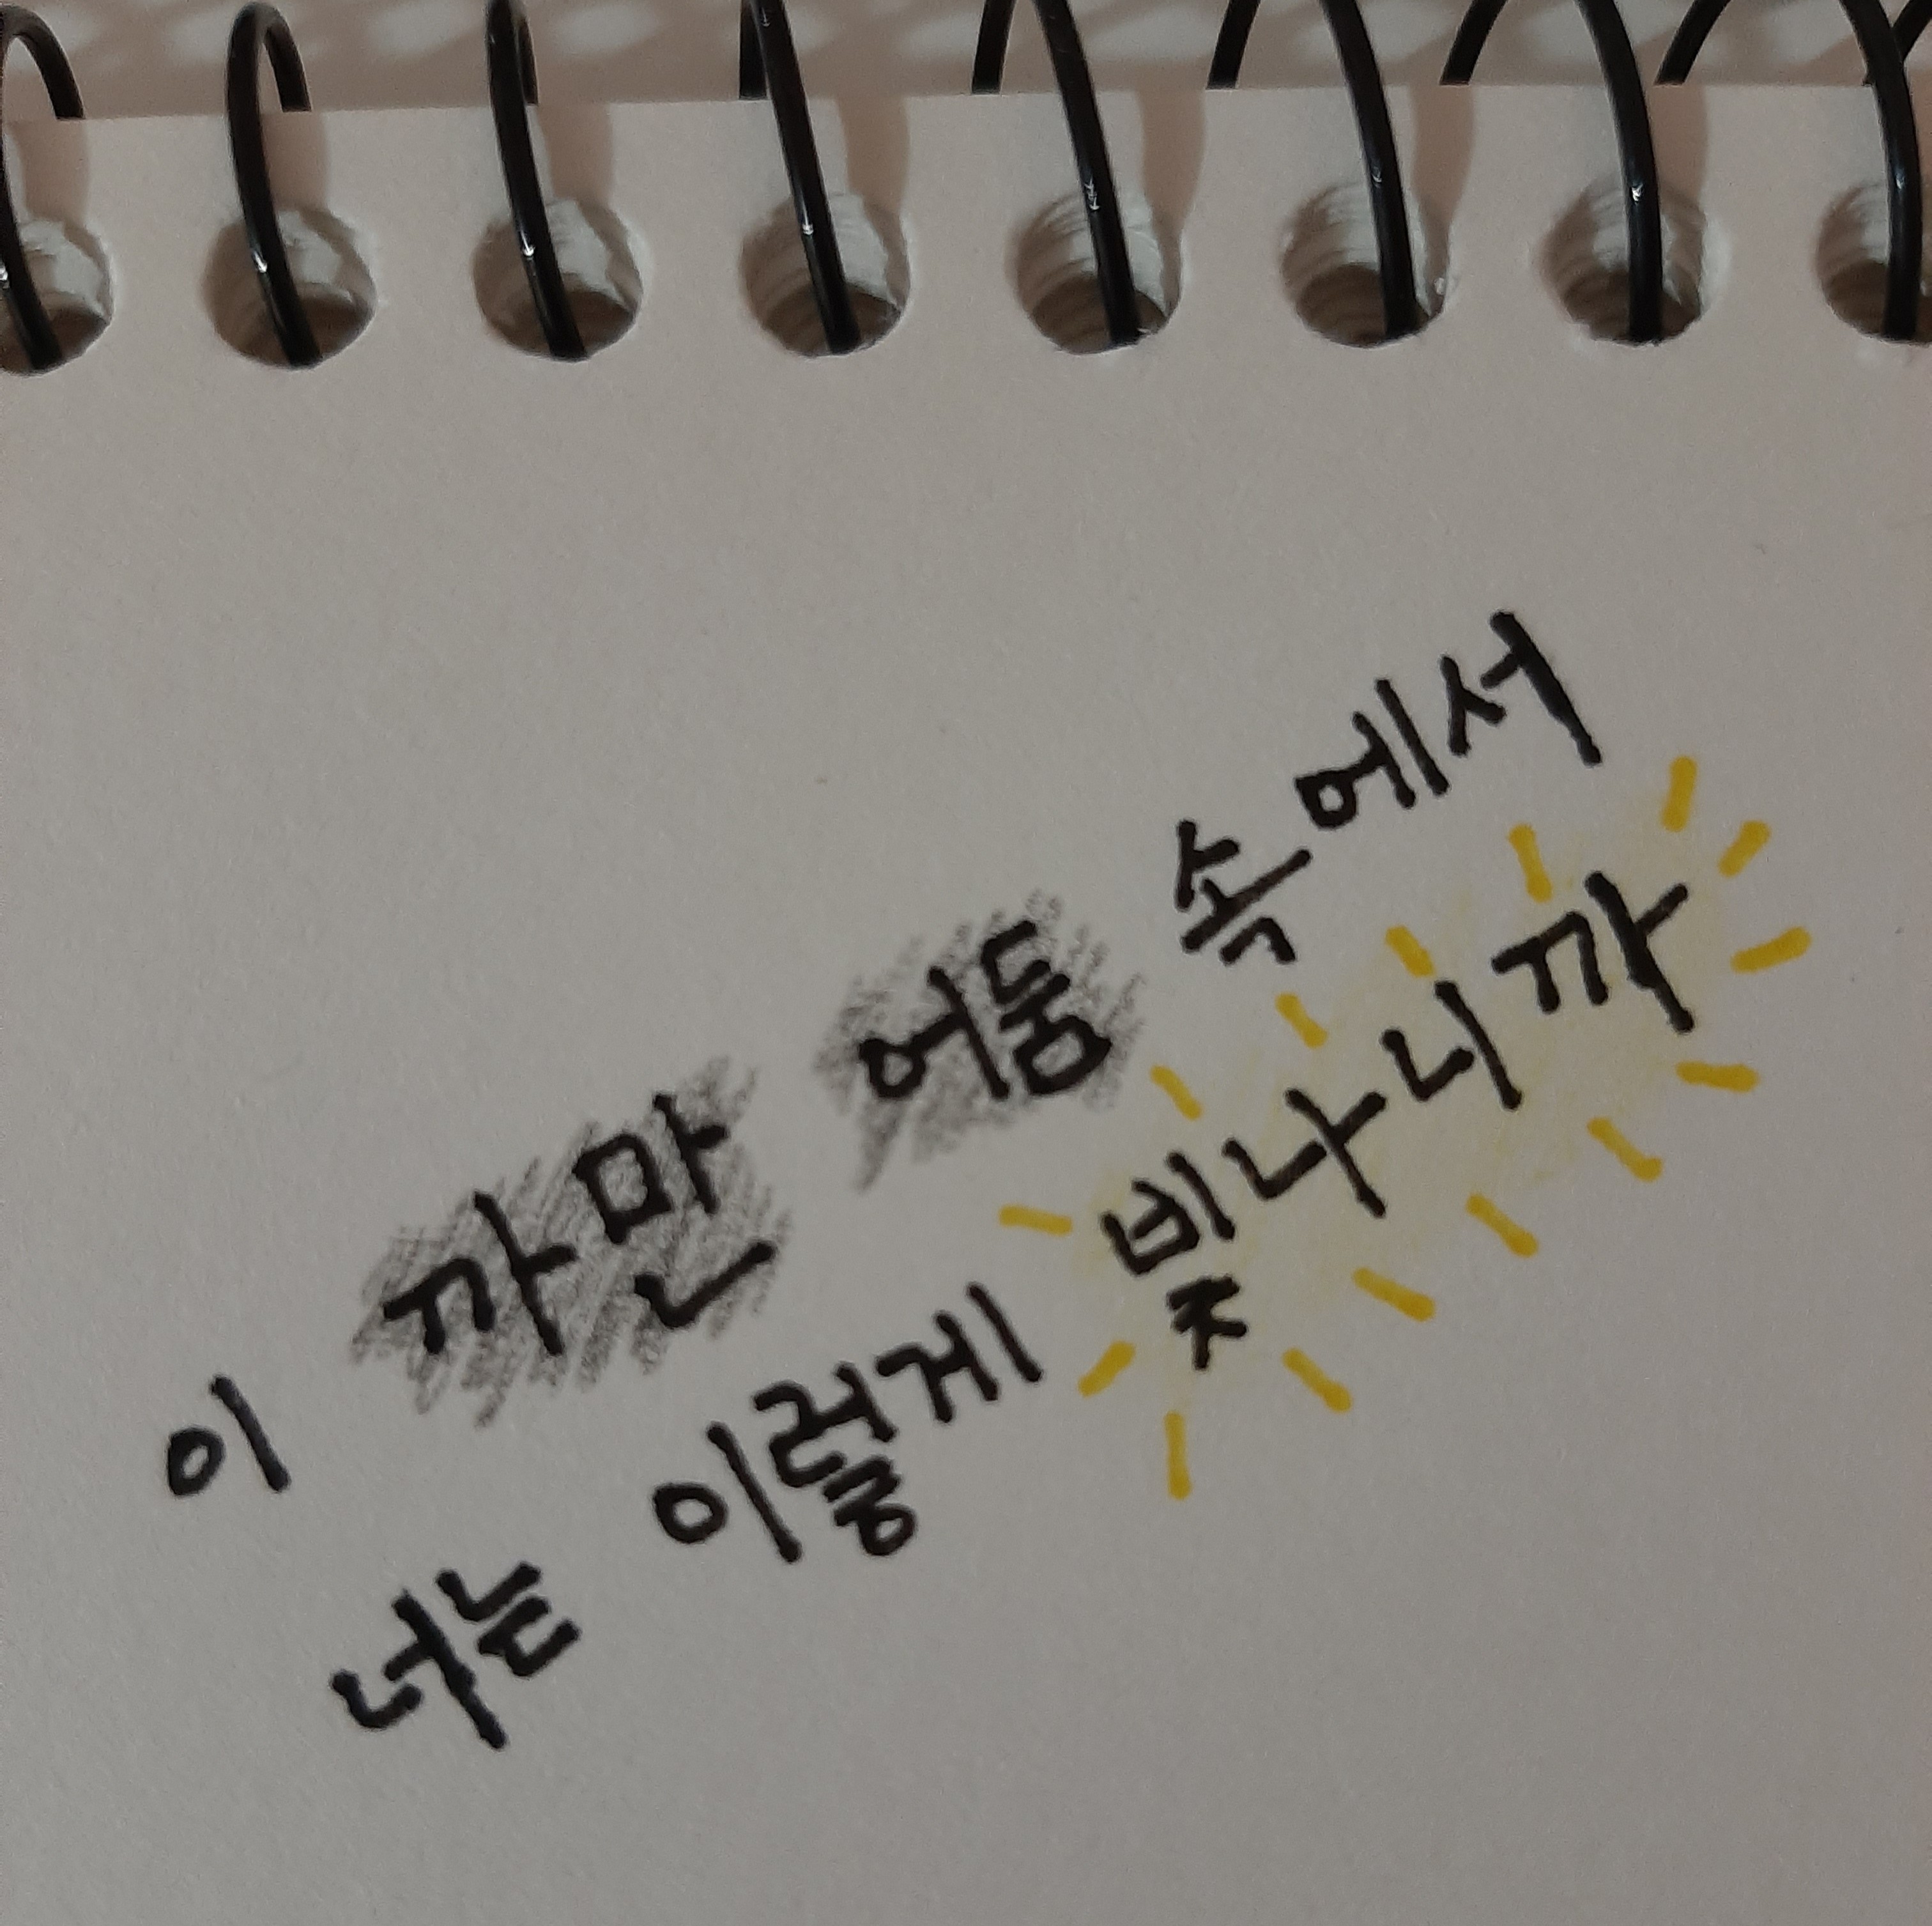 이 까만 어둠 속에서
너는 이렇게 빛나니까